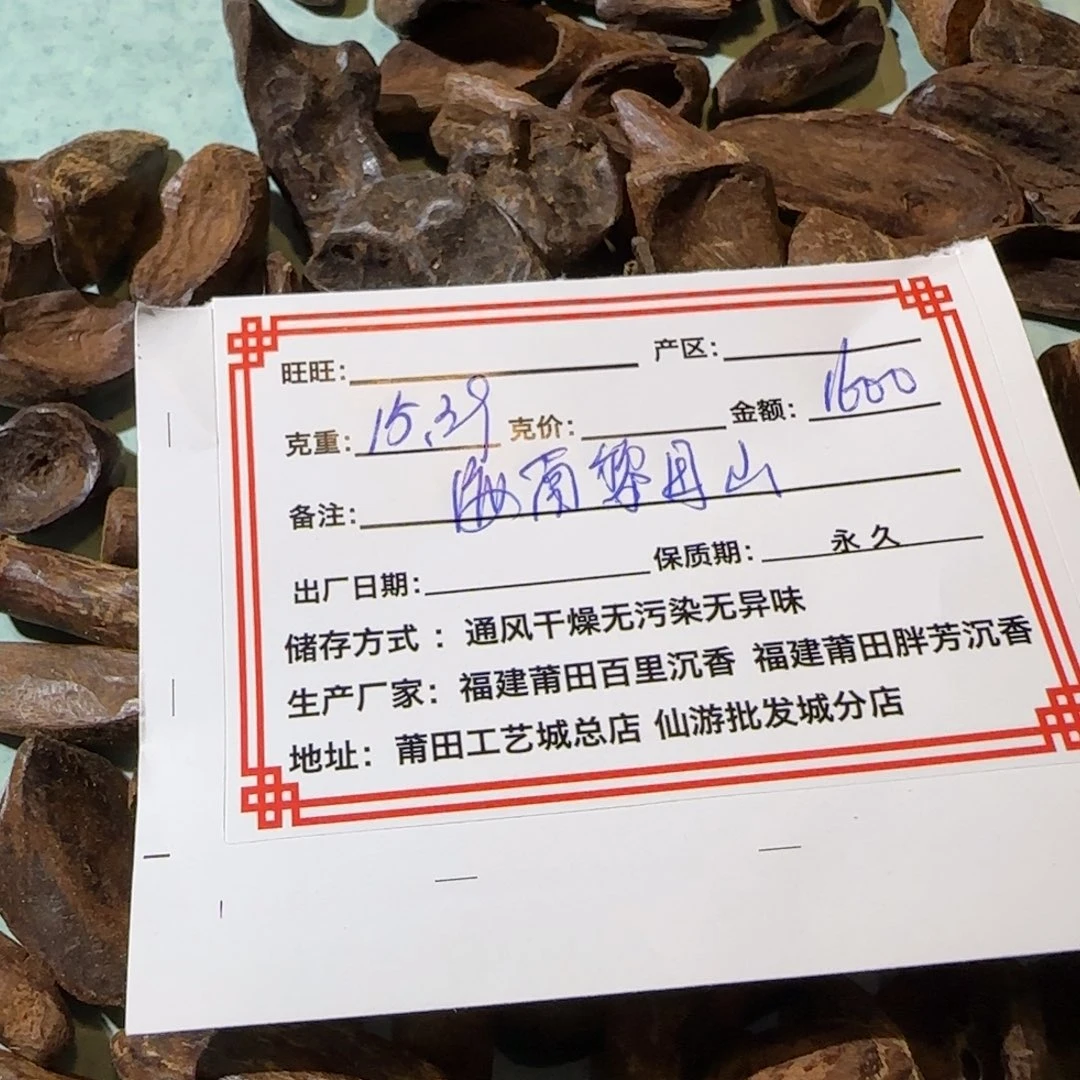 旺旺: 产区:
克重: 15.39 克价: 金额: 1600
备注: 海南黎母山
出厂日期: 保质期: 永久
储存方式：通风干燥无污染无异味
生产厂家：福建莆田百里沉香 福建莆田胖芳沉香
地址：莆田工艺城总店 仙游批发城分店